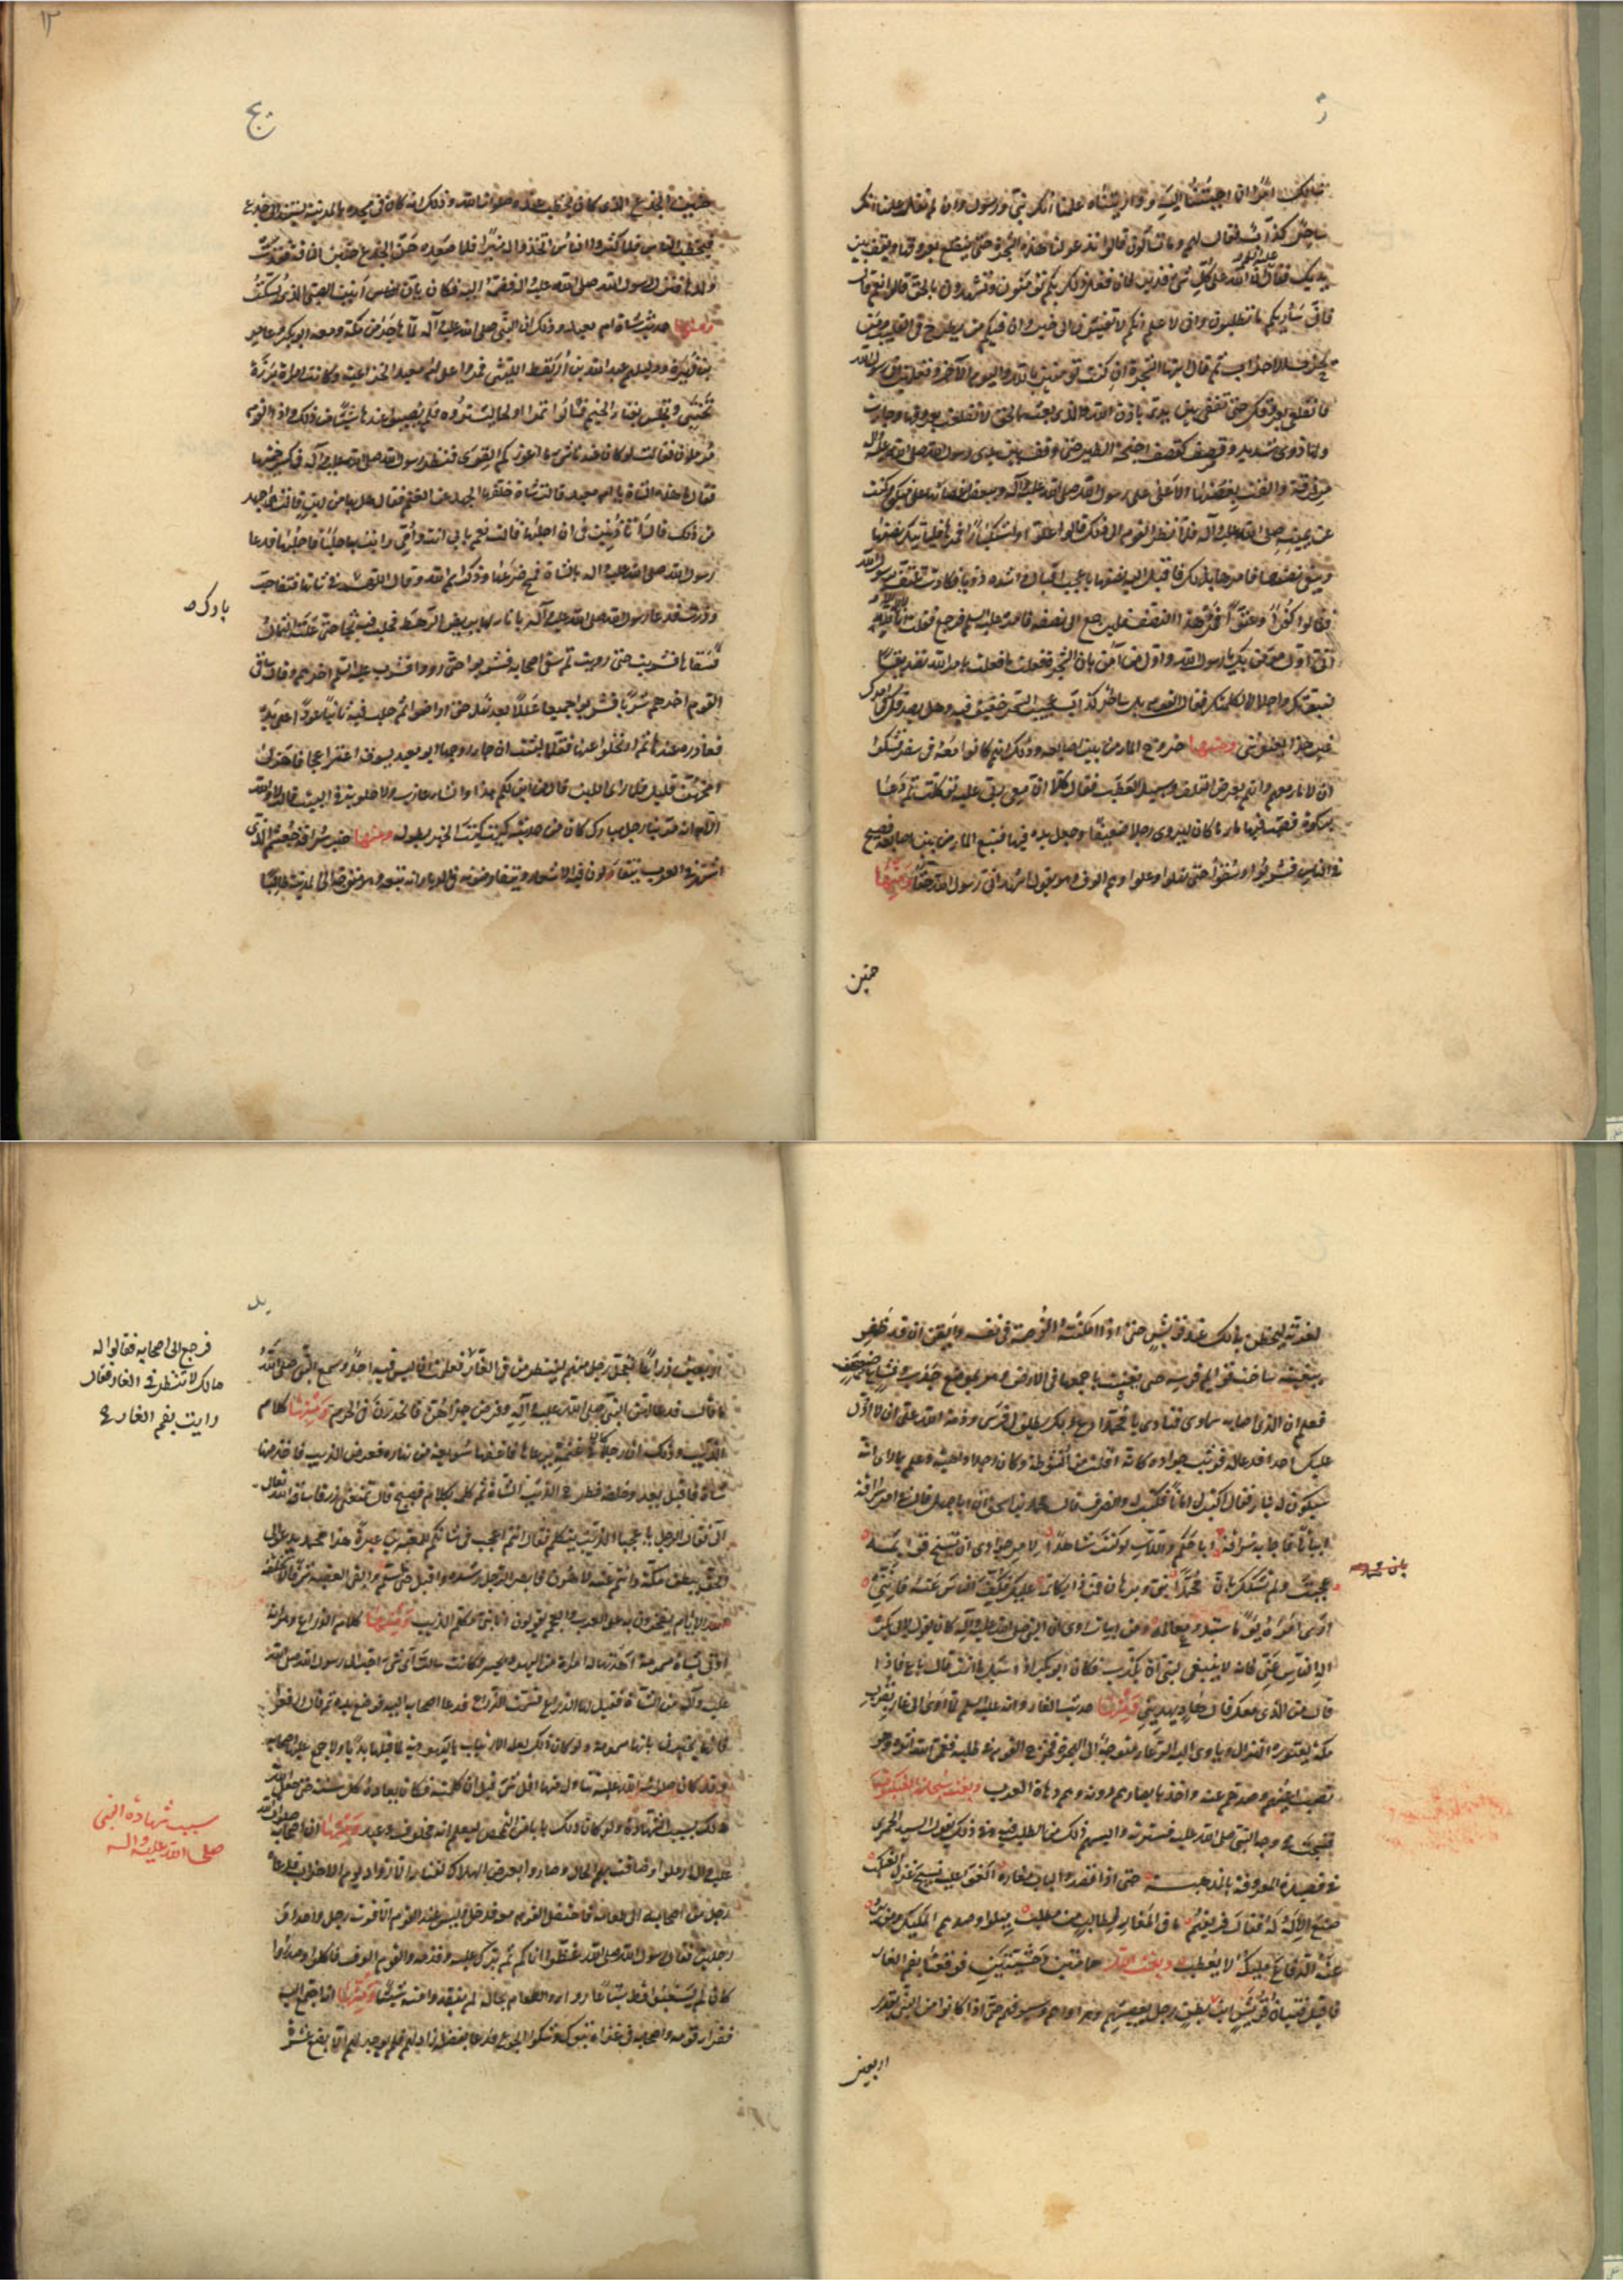 نسألك امرا ان اجبتنا اليه واريتناه علمنا انك نبي ورسول وان لم تفعل علمنا انك
ساحر كذاب فقال لهم وما تسألون قالوا تدعو لنا هذه الشجرة حتى تنقلع بعروقها وتقف بين
يديك فقال ان الله على كل شيء قدير فان فعل ذلك بكم تؤمنون وتشهدون بالحق قالوا نعم قال
فاني ساريكم ما تطلبون واني لاعلم انكم لا تفيئون الى خير وان فيكم من يطرح في القليب ومن
يحزب الاحزاب ثم قال ايتها الشجرة ان كنت تؤمنين بالله واليوم الآخر وتعلمين اني رسول الله
فانقلعي بعروقك حتى تقفي بين يدي باذن الله والذي بعثه بالحق لانقلعت بعروقها وجاءت
ولها دوي شديد وقصف كقصف اجنحة الطير حتى وقفت بين يدي رسول الله صلى الله عليه وآله
مرفرفة والقت بغصنها الاعلى على رسول الله صلى الله عليه وآله وببعض اغصانها على منكبي وكنت
عن يمينه صلى الله عليه وآله فلما نظر القوم الى ذلك قالوا علوا واستكبارا فمرها فليأتك نصفها
ويبقى نصفها فامرها بذلك فاقبل اليه نصفها باعجب اقبال واشده دويا فكادت تلتف برسول الله
فقالوا كفرا وعتوا فمر هذا النصف فليرجع الى نصفه فامره عليه السلم فرجع فقلت انا
اني اول مؤمن بك يا رسول الله واول من آمن بان الشجرة فعلت ما فعلت بامر الله تصديقا
لنبوتك واجلالا لكلمتك فقال القوم بل ساحر كذاب عجيب السحر خفيف فيه وهل يصدقك في امرك
غير هذا يعنوني ومنها خروج الماء من بين اصابعه وذلك انهم كانوا معه في سفر فشكوا
ان لا ماء معهم وانهم بعرض التلف وسبيل العطب فقال كلا ان معي ربي عليه توكلت ثم دعا
بركوة فصب فيها ماء ما كان ليروي رجلا ضعيفا وجعل يده فيها فنبع الماء من بين اصابعه فصيح
في الناس فشربوا وسقوا حتى نهلوا وعلوا وهم الوف وهو يقول اشهد اني رسول الله حقا ومنها
حنين
١٢
يج
حنين الجذع الذي كان يخطب عنده صلوات الله وذلك انه كان في مسجده بالمدينة يستند الى جذع
فيخطب الناس فلما كثر الناس اتخذوا له منبرا فلما صعده حن الجذع حنين الناقة فقدت
ولدها فنزل رسول الله صلى الله عليه وآله فضمه اليه فكان يئن انين الصبي الذي يسكت
ومنها حديث شاة ام معبد وذلك ان النبي صلى الله عليه وآله لما هاجر من مكة ومعه ابو بكر وعامر
بن فهيرة ودليلهم عبد الله بن اريقط الليثي فمروا على ام معبد الخزاعية وكانت امرأة برزة
تحتبي وتجلس بفناء الخيمة فسألوا تمرا او لحما ليشتروه فلم يصيبوا عندها شيئا من ذلك واذا القوم
مرملون فقالت لو كان عندنا شيء ما اعوزكم القرى فنظر رسول الله صلى الله عليه وآله في كسر خيمتها
فقال ما هذه الشاة يا ام معبد قالت شاة خلفها الجهد عن الغنم فقال هل بها من لبن قالت هي اجهد
من ذلك قال أتأذنين في ان احلبها قالت نعم بابي انت وامي ان رايت بها حلبا فاحلبها فدعا
رسول الله صلى الله عليه وآله بالشاة فمسح ضرعها وذكر اسم الله وقال اللهم بارك في شاتها فتفاجت
ودرت فدعا رسول الله صلى الله عليه وآله باناء لها يربض الرهط فحلب فيه ثجا حتى علته الثمال
فسقاها فشربت حتى رويت ثم سقى اصحابه فشربوا حتى رووا فشرب عليه السلم آخرهم وقال ساقي
القوم آخرهم شربا فشربوا جميعا عللا بعد نهل حتى اراضوا ثم حلب فيه ثانيا عودا على بدء
فغادره عندها ثم ارتحلوا عنها فقلما لبثت ان جاء زوجها ابو معبد يسوق اعنزا عجافا هزلى
مخهن قليل فلما رأى اللبن قال من اين لكم هذا والشاء عازب ولا حلوبة في البيت قالت لا والله
الا انه مر بنا رجل مبارك كان من حديثه كيت كيت الخبر بطوله ومنها خبر سراقة بن جعشم الذي
اشتهر في العرب يتقاولون فيه الاشعار ويتفاوضونه في الديار انه تبعه وهو متوجه الى المدينة طالبا
بارك ص
لغرته ليحظى بذلك عند قريش حتى اذا امكنته الفرصة في نفسه وايقن ان قد ظفر
ببغيته ساخت قوائم فرسه حتى تغيبت باجمعها في الارض وهو بموضع جدب وقاع صفصف
فعلم ان الذي اصابه سماوي فنادى يا محمد ادع ربك يطلق لي فرسي وذمة الله علي ان لا ادل
عليك احدا فدعا له فوثب جواده كانه افلت من انشوطة وكان رجلا داهية وعلم بما رأى انه
سيكون له نبأ فقال اكتب لي امانا فكتب له وانصرف قال محمد بن اسحق ان ابا جهل قال في امر سراقة
ابياتا فاجابه سراقة ابا حكم واللات لو كنت شاهدا لامر جوادي اذ تسيخ قوائمه
عجبت ولم تشكك بان محمدا نبي وبرهان فمن ذا يكاتمه عليك بكف الناس عنه فانني
ارى امره يوما ستبدو معالمه
اله الناس عني فانه لا ينبغي لنبي ان يكذب فكان ابو بكر اذا سئل ما انت قال باغ فاذا
قال من الذي معك قال هاد يهديني ومنها حديث الغار وانه عليه السلم لما اوى الى غار بقرب
مكة يعتوره النزال ويأوي اليه الرعاء متوجها الى الهجرة فخرج القوم في طلبه فعمى الله اثره وهو
نصب اعينهم وصدهم عنه واخذ بابصارهم دونه وهم دهاة العرب وبعث سبحانه العنكبوت
فنسجت في وجه النبي صلى الله عليه فسترته وآيسهم ذلك من الطلب فيه وفي ذلك يقول السيد الحميري
في قصيدته المعروفة بالمذهبة حتى اذا قصدوا لباب مغاره الفوا عليه نسيج غزل العنكب
صنع الاله له فقال فريقهم ما في المغار لطالب من مطلب ميلوا وصدهم المليك ومن يرد
عنه الدفاع مليكه لا يعطب وبعث الله حمامتين وحشيتين فوقعتا بفم الغار
فاقبل فتيان قريش من كل بطن رجل بعصيهم وهراواهم وسيوفهم حتى اذا كانوا من النبي بقدر
اربعين
يد
اربعين ذراعا تعجل رجل منهم لينظر من في الغار فعلمت ان ليس فيه احد وسمع النبي صلى الله
ما قال فدعا لهن النبي صلى الله عليه وآله وفرض جزاءهن فانحدرن في الحرم ومنها كلام
الذئب وذلك ان رجلا كان في غنمه يرعاها فاغفلها سويعة من نهاره فعرض الذئب فاخذ منها
شاة فاقبل يعدو خلفه فطرح الذئب الشاة ثم كلمه بكلام فصيح قال تمنعني رزقا ساقه الله تعالى
الي فقال الرجل يا عجبا الذئب يتكلم فقال انتم اعجب في شأنكم للمعتبرين عبرة هذا محمد يدعو الى
الحق ببطن مكة وانتم عنه لاهون فابصر الرجل رشده واقبل حتى اسلم وابقى لعقبه شرفا لا تخلقه
الايام يفخرون به على العرب والعجم يقولون انا بني مكلم الذئب ومنها كلام الذراع وهو انه
اوتي بشاة مسمومة اهدتها له امرأة من اليهود بخيبر وكانت سألت اي شيء احب الى رسول الله صلى الله
عليه وآله من الشاة فقيل لها الذراع فسمت الذراع فدعا اصحابه اليه فوضع يده ثم قال ارفعوا
فانها تخبرني بانها مسمومة ولو كان ذلك لعلة الارتياب باليهودية لما قبلها بديا ولا جمع عليها اصحابه
وقد كان صلى الله عليه تناول منها اقل شيء قبل ان كلمته فكان يعاده كل سنة حتى جعل الله
ذلك سبب الشهادة وكان ذلك بابا من التمحيص ليعلم انه مخلوق وعبد ومنها ان اصحابه صلوات الله
عليه وآله ارملوا وضاقت بهم الحال وصاروا بعرض الهلاك لفناء الازواد يوم الاحزاب فدعاه
رجل من اصحابه الى طعامه فاحتفل القوم معه فدخل وليس عند القوم الا قوت رجل واحد او
رجلين فقال رسول الله صلى الله غطوا اناءكم ثم برك عليه وقدمه والقوم الوف فاكلوا وصدروا
كأن لم يسغبوا قط شباعا رواء والطعام بحاله لم يفقدوا منه شيئا ومنها انه اجتمع اليه
فقراء قومه واصحابه في غزاة تبوك وشكوا الجوع فدعا بفضل زاد لهم فلم يوجد لهم الا بضع عشرة
فرجع الى اصحابه فقالوا له
مالك لا تنظر في الغار فقال
رايت بفم الغار
سبب شهادة النبي
صلى الله عليه واله